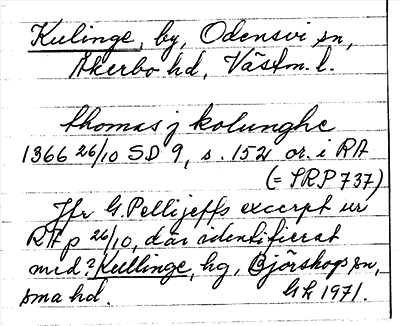 Kulinge, by, Odensvi sn,
Åkerbo hd, Västm. l.
thomas j kolunghe
1366 26/10 SD 9, s. 152 or. i RA
(= SRP 737)
Jfr G. Pellijeffs excerpt ur
RA p 26/10, där identifierat
med? Kullinge, hg, Björskogs sn,
sma hd. GH 1971.